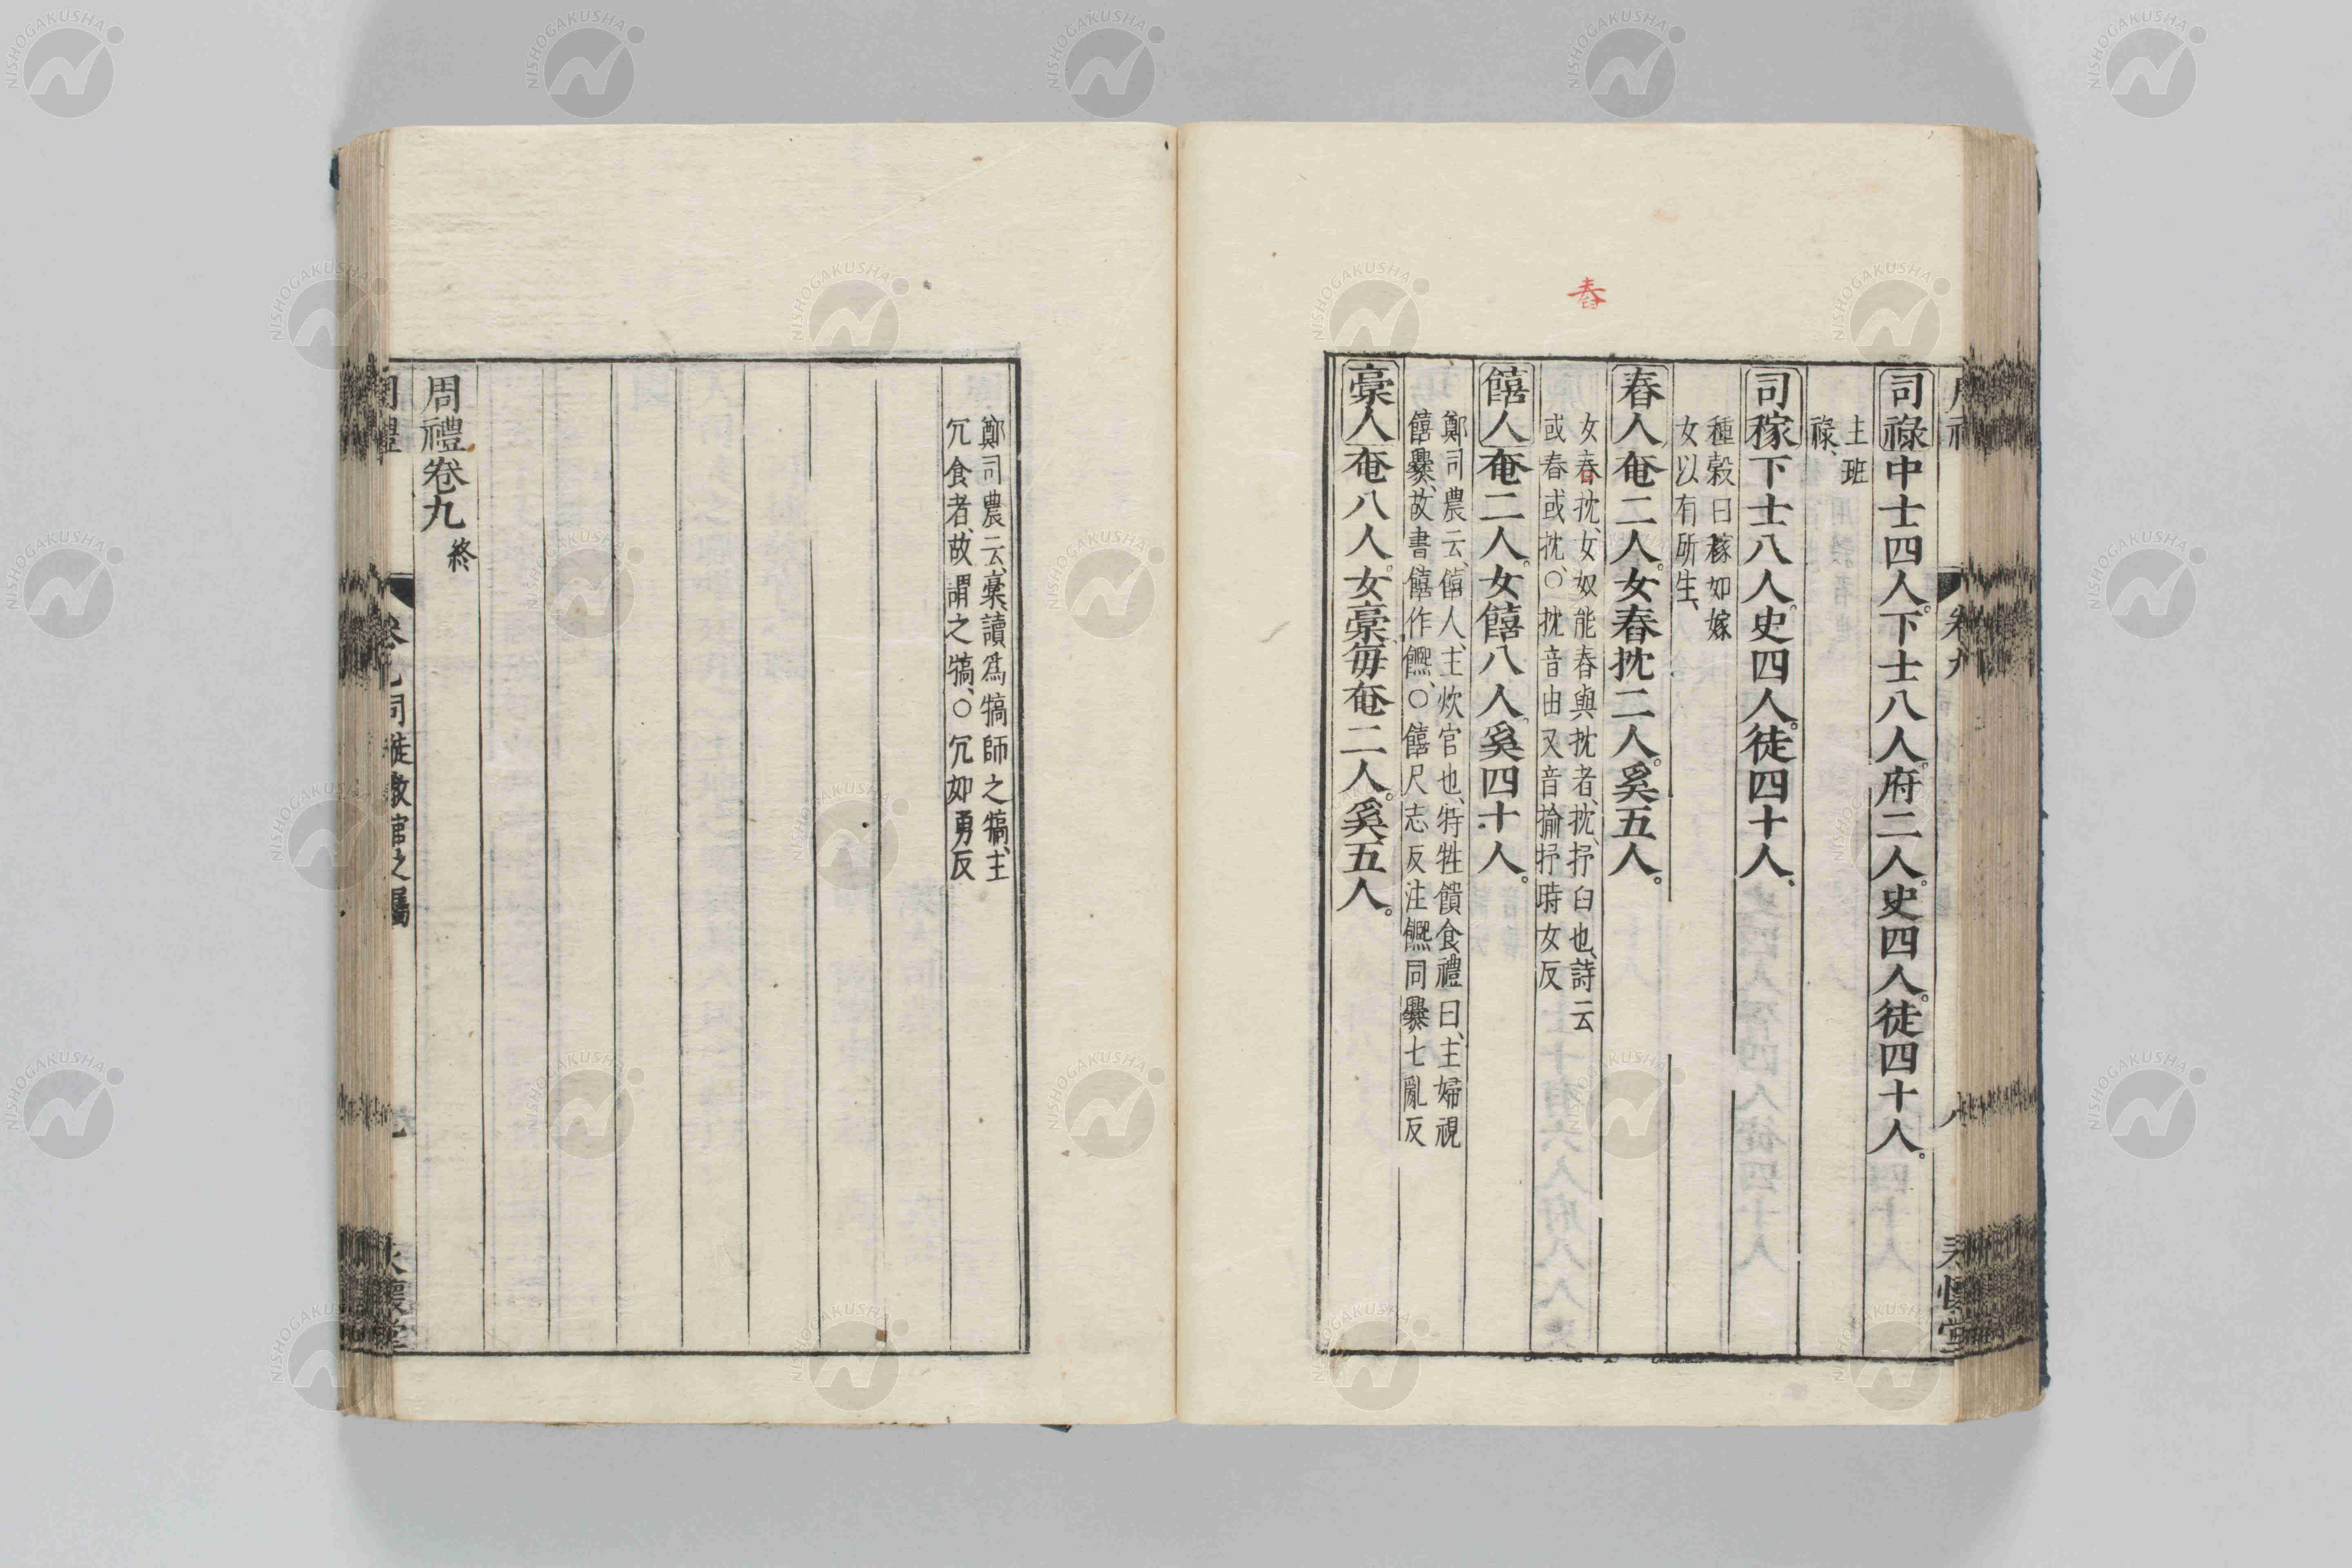 舂
司祿中士四人。下士八人。府二人。史四人。徒四十人。
主班
祿、
司稼下士八人。史四人。徒四十人、
種穀曰稼如嫁
女以有所生、
春人奄二人。女春抌二人。奚五人。
女舂抌、女奴能春與抌者、抌、抒臼也、詩云
或春或抌、〇抌音由又音揄抒時女反
饎人奄二人。女饎八人奚四十人。
鄭司農云、饎人、主炊官也、特牲饋食禮曰、主婦視
饎爨、故書饎作𩟄、〇饎尺志反注𩟄同爨七亂反
稾人奄八人。女稾每奄二人。奚五人。
鄭司農云、稾、讀爲犒師之犒、主
冗食者、故謂之犒、〇冗如勇反
周禮卷九 終
卷九
八
永懷堂
周禮
司徒敎官之屬
永懷堂
NISHOGAKUSHA